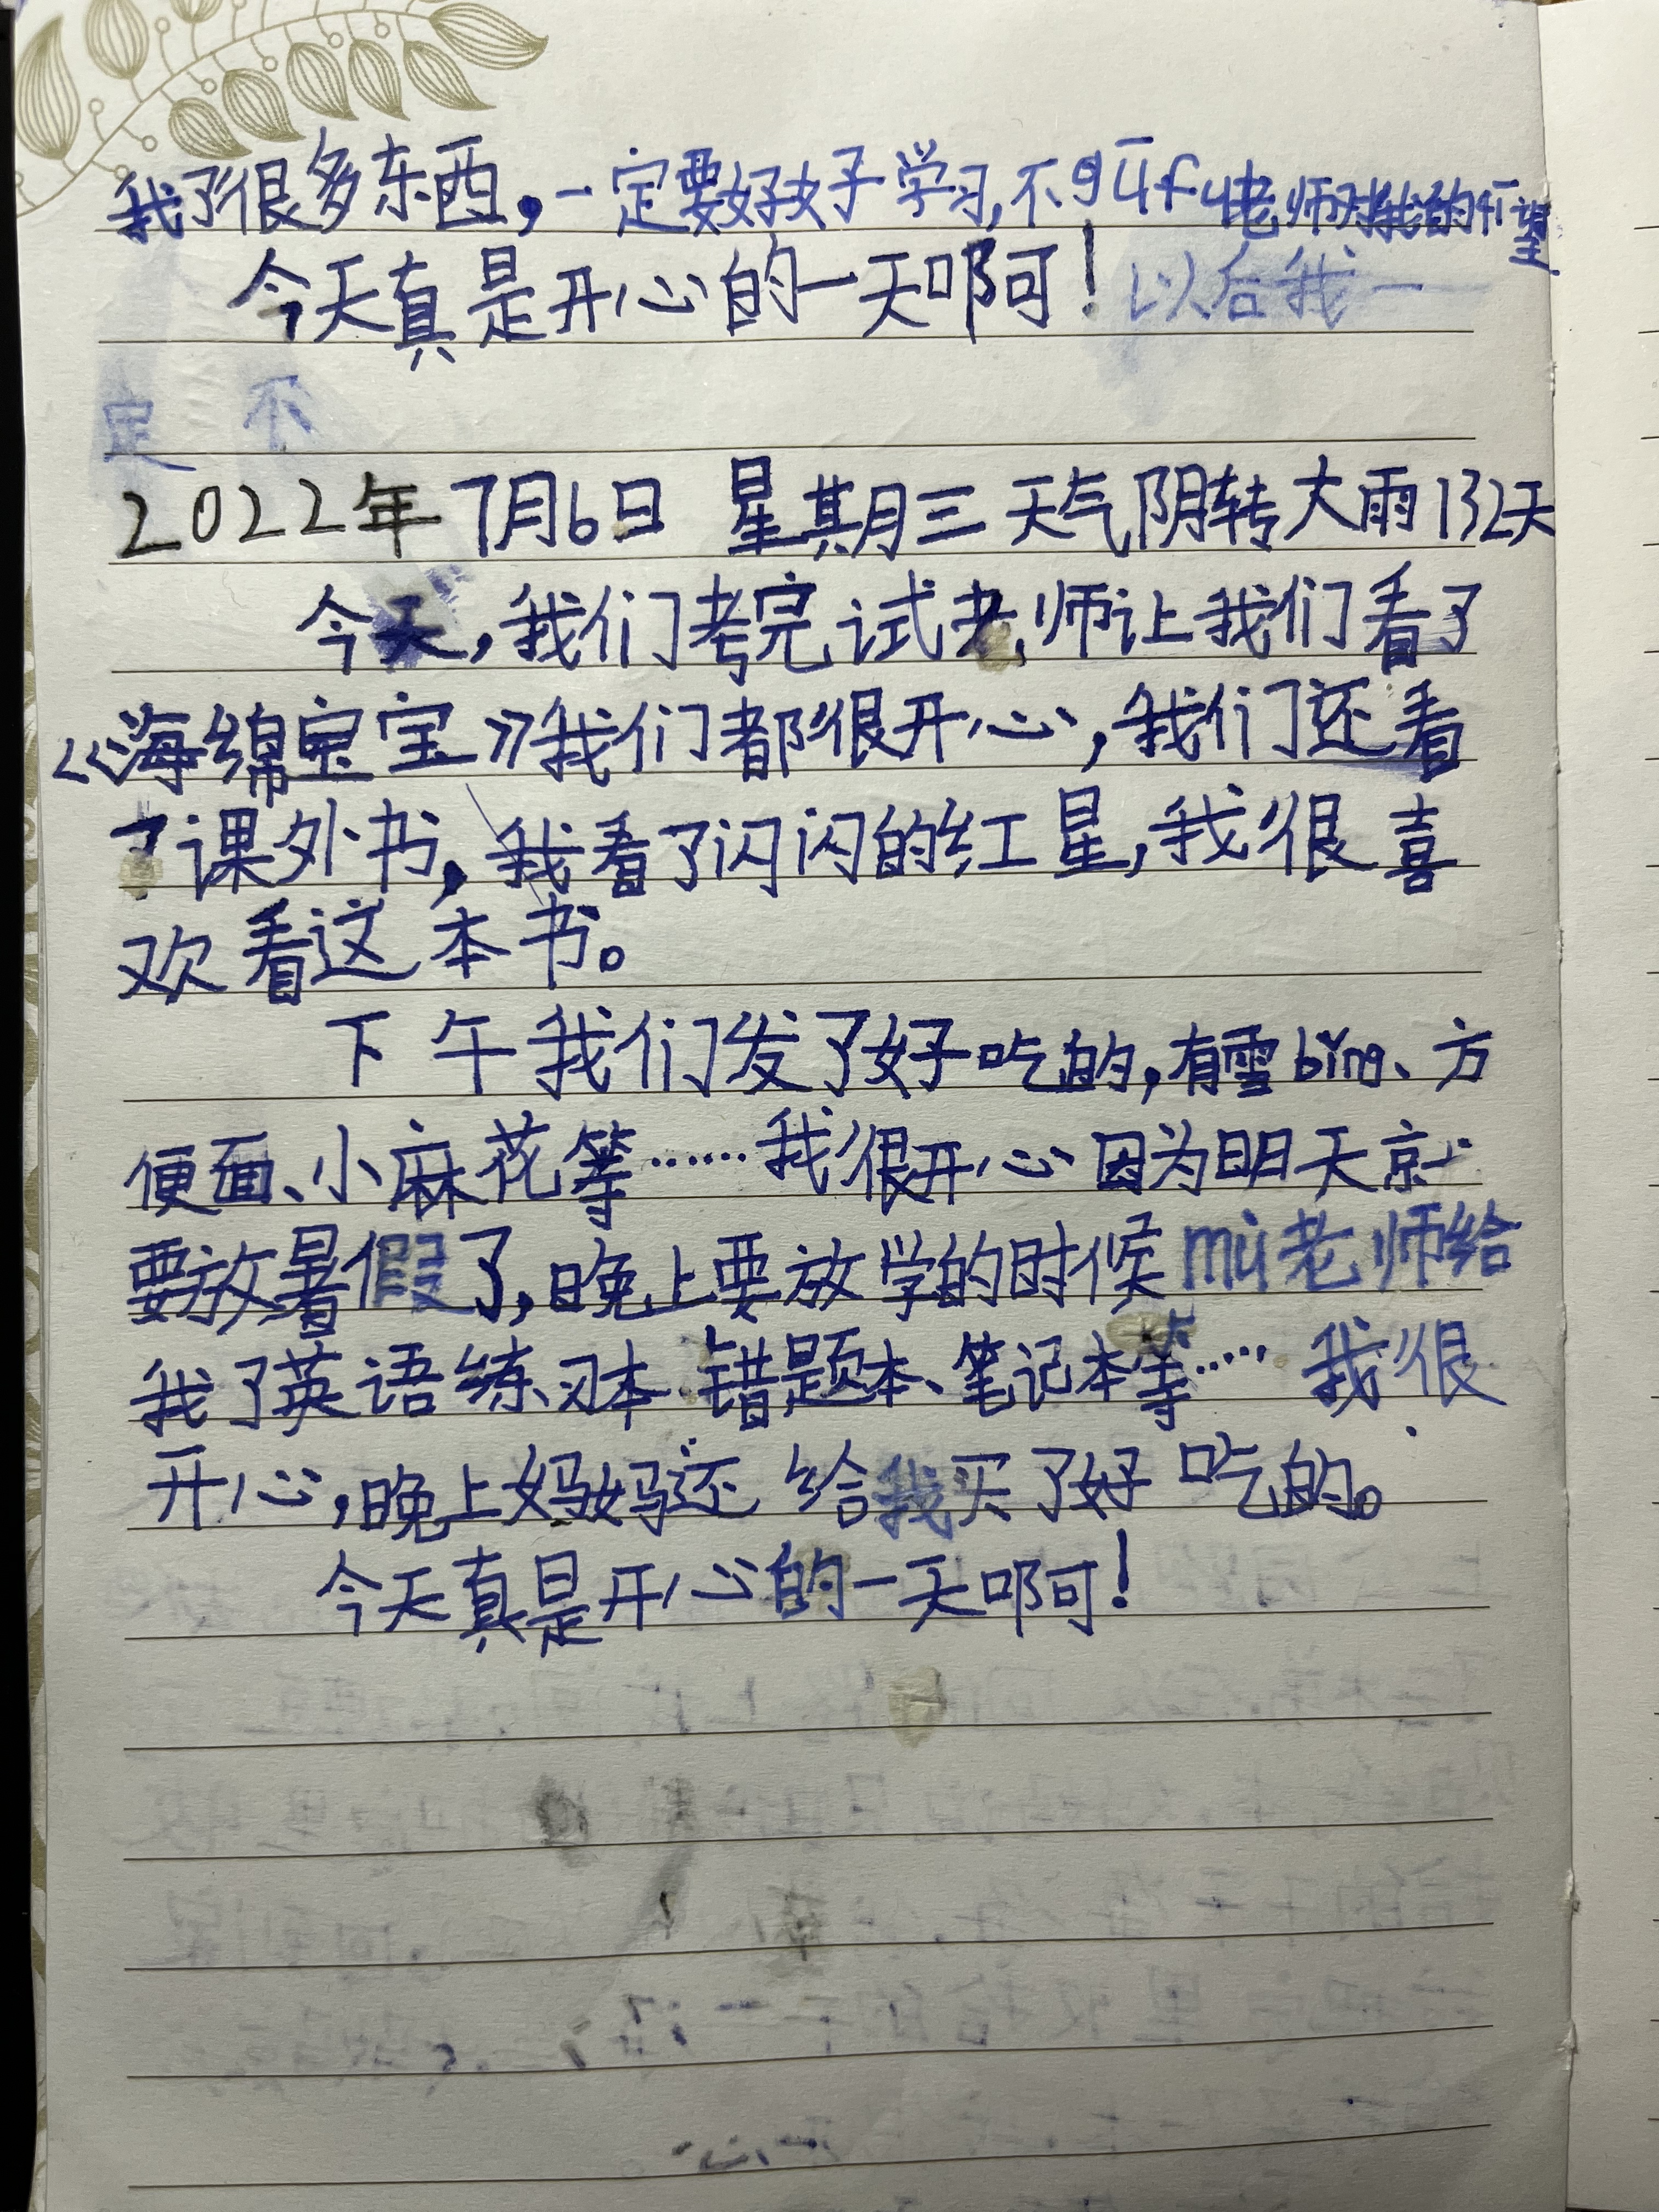 我了很多东西，一定要好好学习，不gūfù老师对我的qī望
今天真是开心的一天啊！以后我一
定 不
2022年7月6日 星期三 天气阴转大雨132天
今天，我们考完试老师让我们看了
《海绵宝宝》我们都很开心，我们还看
了课外书，我看了闪闪的红星，我很喜
欢看这本书。
下午我们发了好吃的，有雪bīng、方
便面、小麻花等……我很开心因为明天就
要放暑假了，晚上要放学的时候mù老师给
我了英语练习本、错题本、笔记本等…… 我很
开心，晚上妈妈还给我买了好吃的。
今天真是开心的一天啊！